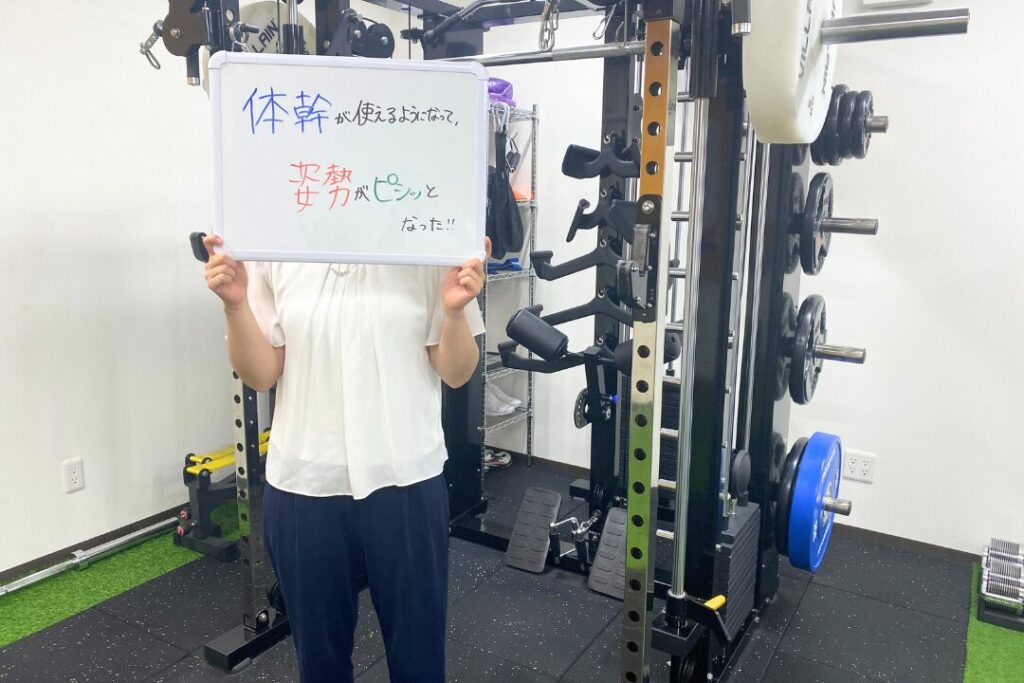 体幹が使えるようになって、
姿勢がピシッと
なった!!
VILLAIN